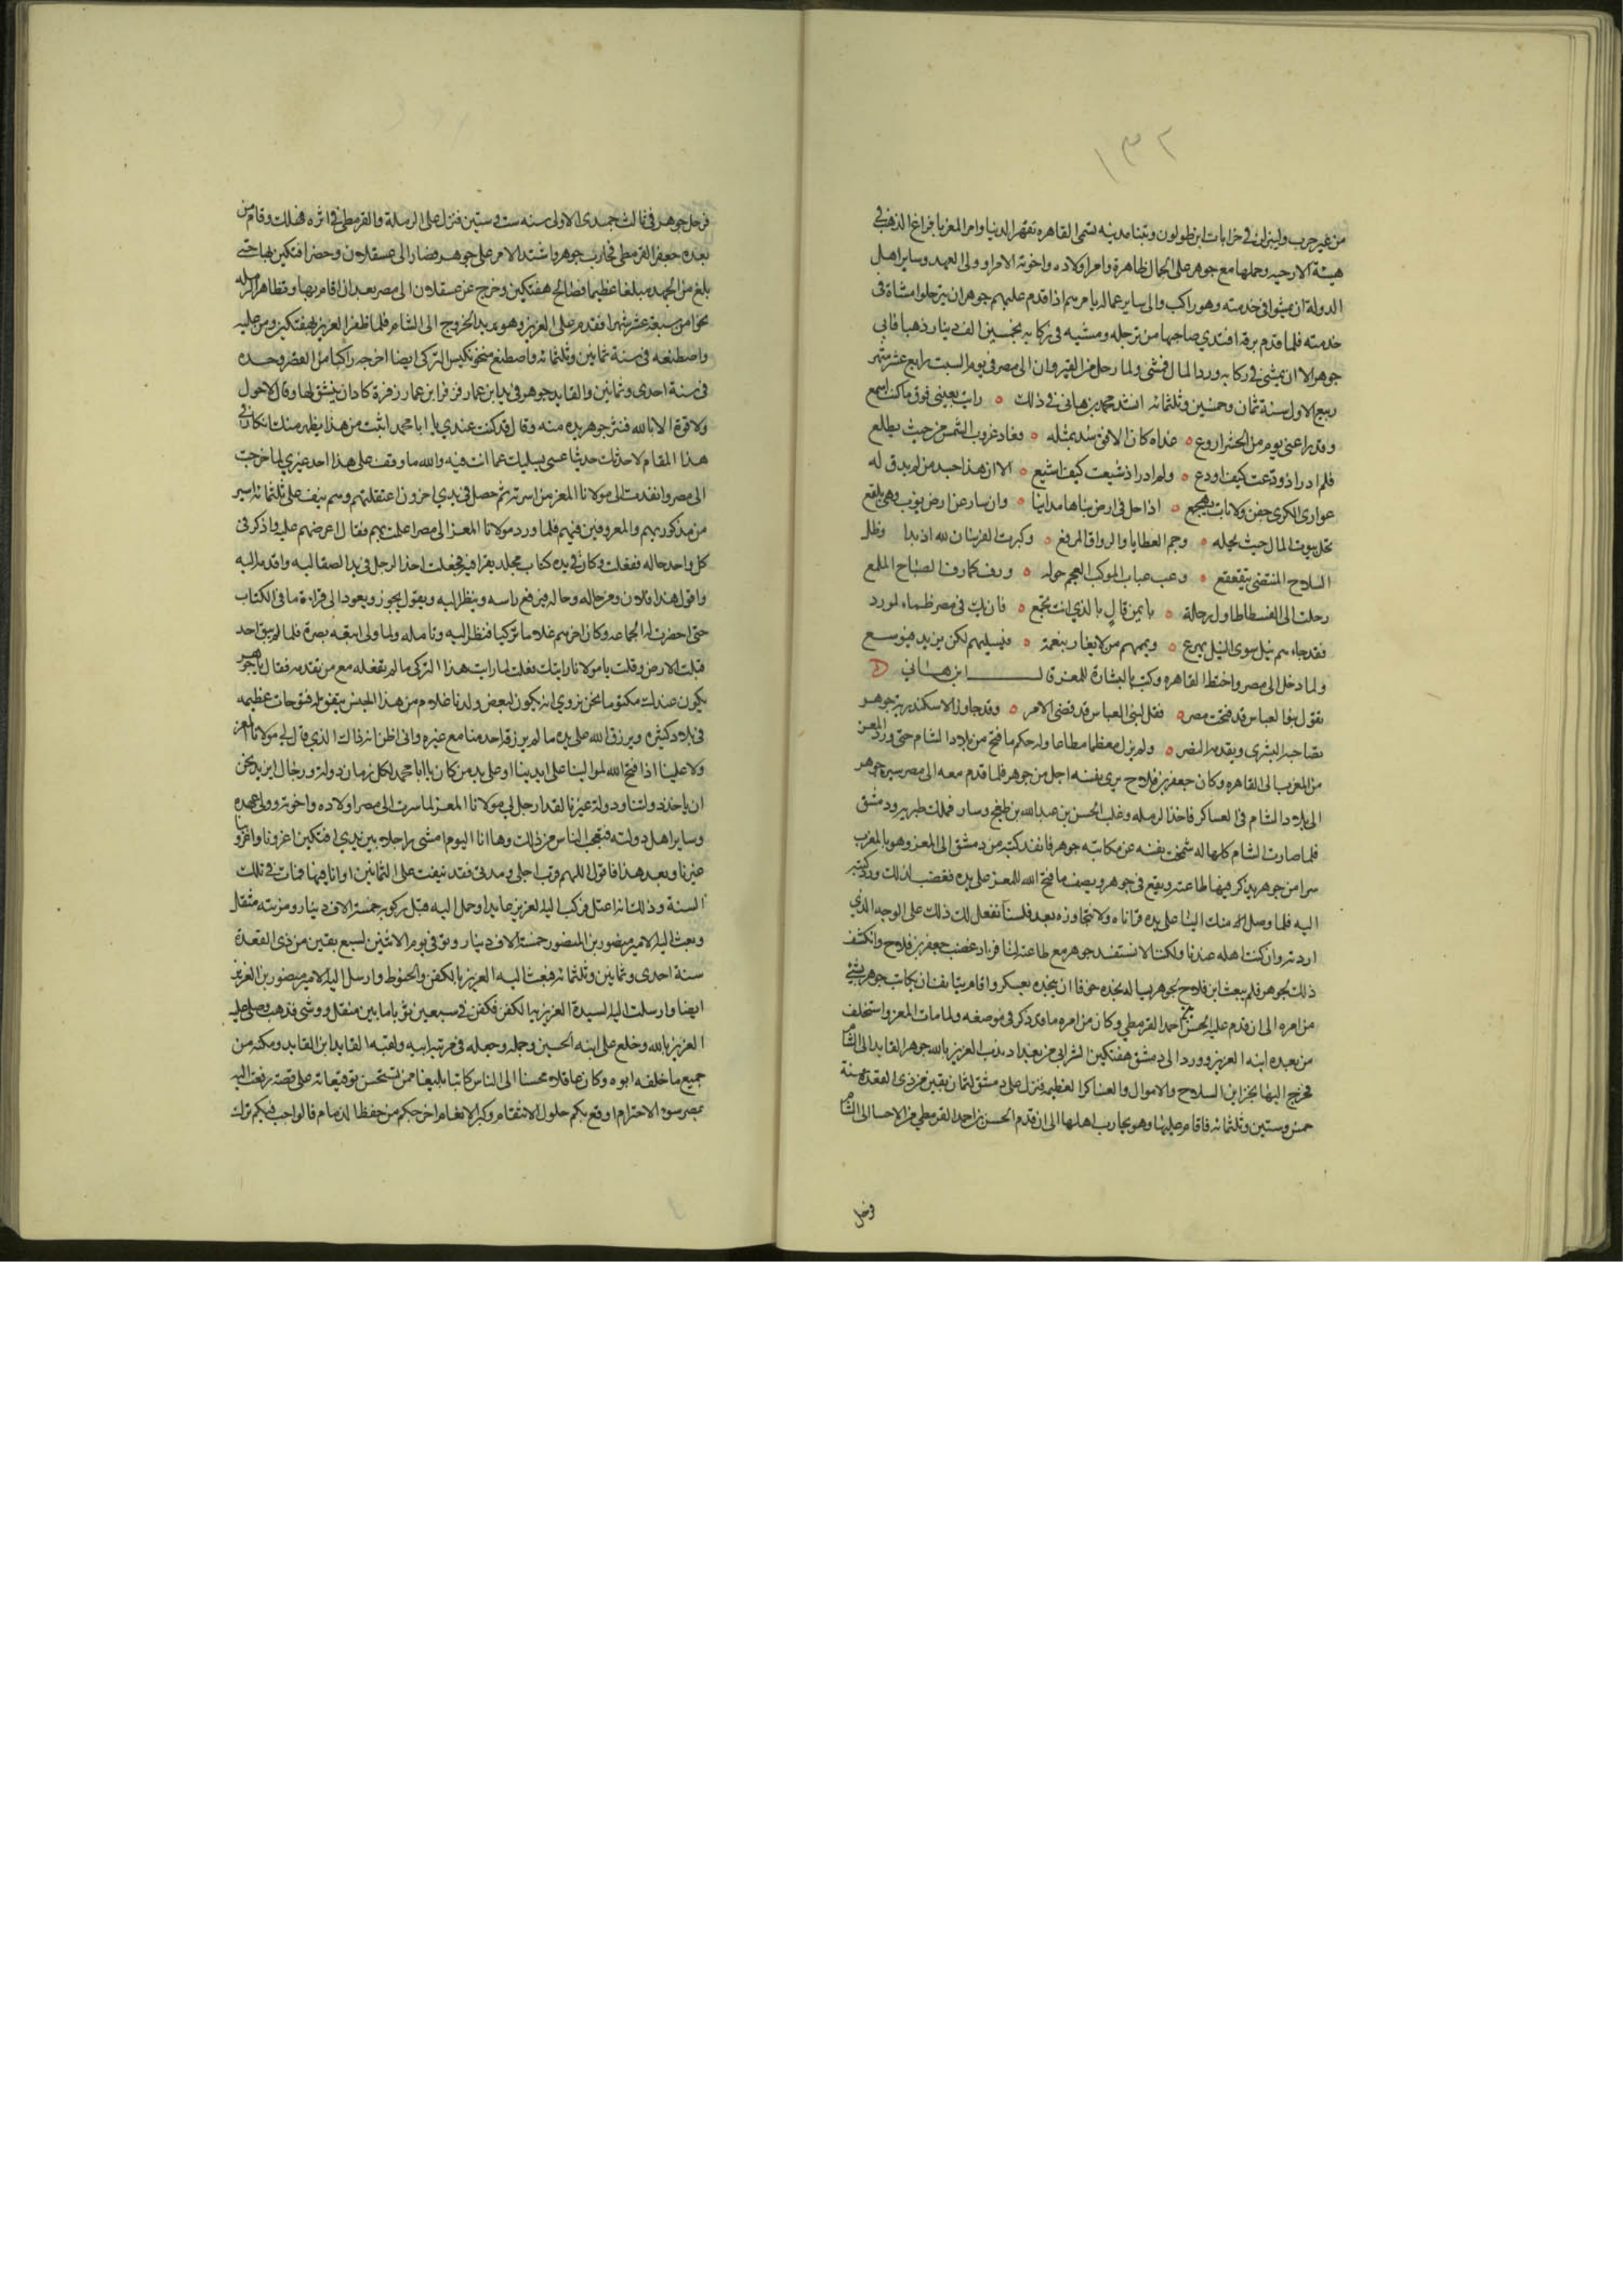 ١٣٢
من غير حرب ولينزلن في خرابات ابن طولون وتبنا مدينه تسمى القاهره تقهر الدنيا وامر المعز بافراغ الذهب في
هيئة الارحيه وحملها مع جوهر على الجمال ظاهرة وامر اولاده واخوته الامرا وولى العهد وساير اهل
الدولة ان يمشوا في خدمته وهو راكب والى ساير عماله يامرهم اذا قدم عليهم جوهر ان يترجلوا مشاة في
خدمته فلما قدم برقة افتدي صاحبها من ترجله ومشيه في ركابه بخمسين الف دينار ذهبا فابى
جوهر الا ان يمشى في ركابه ورد المال فمشى ولما رحل من القيروان الى مصر في يوم السبت رابع عشر شهر
ربيع الاول سنة ثمان وخمسين وثلثمائه انشد محمد بن هانى في ذلك ٥ رايت بعينى فوق ما كنت اسمع
وقد راعنى يوم من الحشر اروع ٥ غداه كان الافق سد بمثله ٥ فعاد غروب الشمس من حيث يطلع
فلم ادر اذ ودعت كيف اودع ٥ ولم ادر اذ شيعت كيف اشيع ٥ الا ان هذا حسد من لم يدق له
غرارى الكرى جفن ولا نات يهجع ٥ اذا حل في ارض بناها مداينا ٥ وان سار عن ارض بوت وهى بلقع
تحل بيوت المال حيث يحله ٥ وجم العطايا والرواق المرفع ٥ وكبرت الفرسان لله اذ بدا وظل
السلاح المنتضى يتقعقع ٥ وعب عباب الموكب الفخم حوله ٥ ورف كما رف الصباح الملمع
رحلت الى الفسطاط اول رحلة ٥ بايمن فال بالذي انت تجمع ٥ فان يك في مصر ظماء لمورد
فقد جاءهم نيل سوى النيل يهرع ٥ ويممهم من لا يغار بنعمة ٥ فيسلبهم لكن يزيد فيوسع
ولما دخل الى مصر واختط القاهره وكتب بالبشارة للمعز قال ابن هانى
تقول بنو العباس قد فتحت مصر ٥ فقل لبنى العباس قد قضى الامر ٥ وقد جاوز الاسكندريه جوهر
تصاحبه البشرى ويقدمه النصر ٥ ولم يزل معظما مطاعا وله حكم ما فتح من بلاد الشام حتى ورد المعز
من المغرب الى القاهره وكان جعفر بن فلاح يرى نفسه اجل من جوهر فلما قدم معه الى مصر سيره جوهر
الى بلاد الشام في العساكر فاخذ الرمله وغلب الحسن بن عبد الله بن طغج وسار فملك طبريه ودمشق
فلما صارت الشام كلها له شمخت نفسه عن مكاتبه جوهر فانفذ كتبه من دمشق الى المعز وهو بالمغرب
سرا من جوهر يذكر فيها طاعته ويقع في جوهر ويصف ما فتح الله للمعز على يده فغضب لذلك ورد كتبه
اليه فلما وصل منك الينا على يده قراناه ولا نتجاوزه بعد فلسنا نفعل لك ذلك على الوجه الذي
اردته وان كنت اهله عندنا ولكنا لا نستفسد جوهر مع طاعته لنا فزاد غضب جعفر بن فلاح وانكشف
ذلك لجوهر فلم يبعث ابن فلاح لجوهر يساله نجده خوفا ان ينجده بعسكر واقام بينا بفنان يكاتب جوهر بشئ
من امره الى ان قدم عليه الحسن بن احمد القرمطي وكان من امره ما قد ذكر في موضعه ولما مات المعز واستخلف
من بعده ابنه العزيز وورد الى دمشق هفتكين الشرابي من بغداد ندب العزيز بالله جوهر القايد الى الشام
فخرج اليها بخزاين السلاح والاموال والعساكر العظيمه فنزل على دمشق لثمان بقين من ذي القعده سنة
خمس وستين وثلثمائه فاقام عليها وهو يحارب اهلها الى ان قدم الحسن بن احمد القرمطي من الاحسا الى الشام
فرحل
فرحل جوهر في ثالث جمدى الاولى سنه ست وستين فنزل على الرملة والقرمطي في اثره فهلك وقام من
بعده جعفر القرمطي فحارب جوهر واشتد الامر على جوهر فصار الى عسقلان وحضر افتكين بها حتى
بلغ من الجهد مبلغا عظيما فصالح هفتكين وخرج عن عسقلان الى مصر بعد ان اقام بها وبظاهر الرمله
نحوا من سبعة عشر شهرا فقدم على العزيز وهو يريد الخروج الى الشام فلما ظفر العزيز بهفتكين ومن عليه
واصطنعه في سنة ثمانين وثلثمائه واصطنع منجوتكين التركي ايضا اخرجه راكبا من القصر وحده
في سنة احدى وثمانين والقايد جوهر في يد ابن عمار فزفر ابن عمار زفرة كاد ان ينشق لها وقال لا حول
ولا قوة الا بالله فنتر جوهر يده منه وقال قد كنت عندي يا ابا محمد اثبت من هذا يظهر منك انكار في
هذا المقام لاحدثك حديثا عسى يسليك عما انت فيه والله ما وقف على هذا احد غيري لما خرجت
الى مصر وانفذت الى مولانا المعز من اسرته ثم حصل في يدي اخرون اعتقلتهم وهم نيف على ثلثمائة اسير
من مذكوريهم والمعروفين فيهم فلما ورد مولانا المعز الى مصر اعلمت بهم فقال اعرضهم علي واذكر في
كل واحد حاله ففعلت وكان في يده كتاب مجلد يقرا فيه فجعلت اخذ الرجل في يد الصقالبه واقدمه اليه
واقول هذا فلان ومن حاله وحاله فيرفع راسه وينظر اليه ويقول يجوز ويعود الى قراءة ما في الكتاب
حتى احضرت له الجماعه وكان اخرهم غلاما تركيا فنظر اليه وتامله ولما ولى اتبعه بصره فلما لم يبق احد
قبلت الارض وقلت يا مولانا رايتك فعلت لما رايت هذا التركي ما لم تفعله مع من تقدمه فقال يا جوهر
يكون عندك مكتوما نحن نروي انه يكون لبعض ولدنا غلام من هذا الجنس يتفق له فتوحات عظيمه
في بلاد كثيره ويرزق الله على يده ما لم يرزق احد منا مع غيره واني اظن انه ذاك الذي قال لي مولانا المعز
ولا علينا اذا فتح الله لموالينا على ايدينا او على يد من كان يا ابا محمد لكل زمان دولة ورجال ايريد نحن
ان ناخذ دولتنا ودولة غيرنا لقد ارجل لي مولانا المعز لما سرت الى مصر اولاده واخوته وولي عهده
وساير اهل دولته فتعجب الناس من ذلك وها انا اليوم امشى راجلا بين يدي هفتكين اعزونا واعزوا بنا
غيرنا وبعد هذا فاقول اللهم قرب اجلي ومدتى فقد نيفت على الثمانين او انا فيها فمات في تلك
السنة وذلك انه اعتل فركب اليه العزيز عايدا وحمل اليه قبل ركوبه خمسة الاف دينار ومرتبه مثقل
وبعث اليه الامير منصور بن المنصور خمسة الاف دينار وتوفي يوم الاثنين لسبع بقين من ذي القعدة
سنة احدى وثمانين وثلثمائه فبعث اليه العزيز بالكفن والحنوط وارسل اليه الامير منصور بن العزيز
ايضا وارسلت اليه السيدة العزيزيه الكفن فكفن في سبعين ثوبا ما بين مثقل ووشى مذهب وصلى عليه
العزيز بالله وخلع على ابنه الحسين وحمله وجعله في مرتبة ابيه ولقبه القايد ابن القايد ومكنه من
جميع ما خلفه ابوه وكان عاقلا محسنا الى الناس كاتبا بليغا فمن تستحسن توقيعاته على قصة رفعت اليه
بمصر سوء الاحترام اوقع بكم حلول الانتقام وكفر الانعام اخرجكم من حفظ الذمام فالواجب فيكم ترك